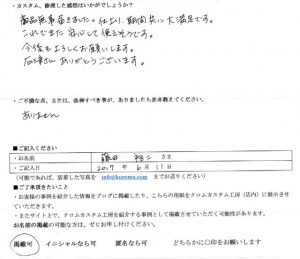 ・カスタム、修理した感想はいかがでしょうか？
商品無事届きました。仕上り、期間共に大満足です。
これでまた安心して使えそうです。
今後もよろしくお願いします。
ありがとうございます。
・ご不満な点、または、改善すべき事が、ありましたら是非教えてください。
ありません
■ご記入ください
・お名前 さま
・ご記入日 2017年 6月 11日
(可能であれば、装着した写真を info@kuromu.com までお送りください)
■ご了承頂きたいこと
・お客様の事例を紹介した情報をブログに掲載したり、こちらの用紙をクロムカスタム工房(店内)に展示させていただきます。
・またサイト上で、クロムカスタム工房を紹介する事例として掲載させていただく可能性があります。
お名前の掲載の可能な方は、ぜひお声し付けください。
掲載可 イニシャルなら可 匿名なら可 どちらかに〇印をお願いします